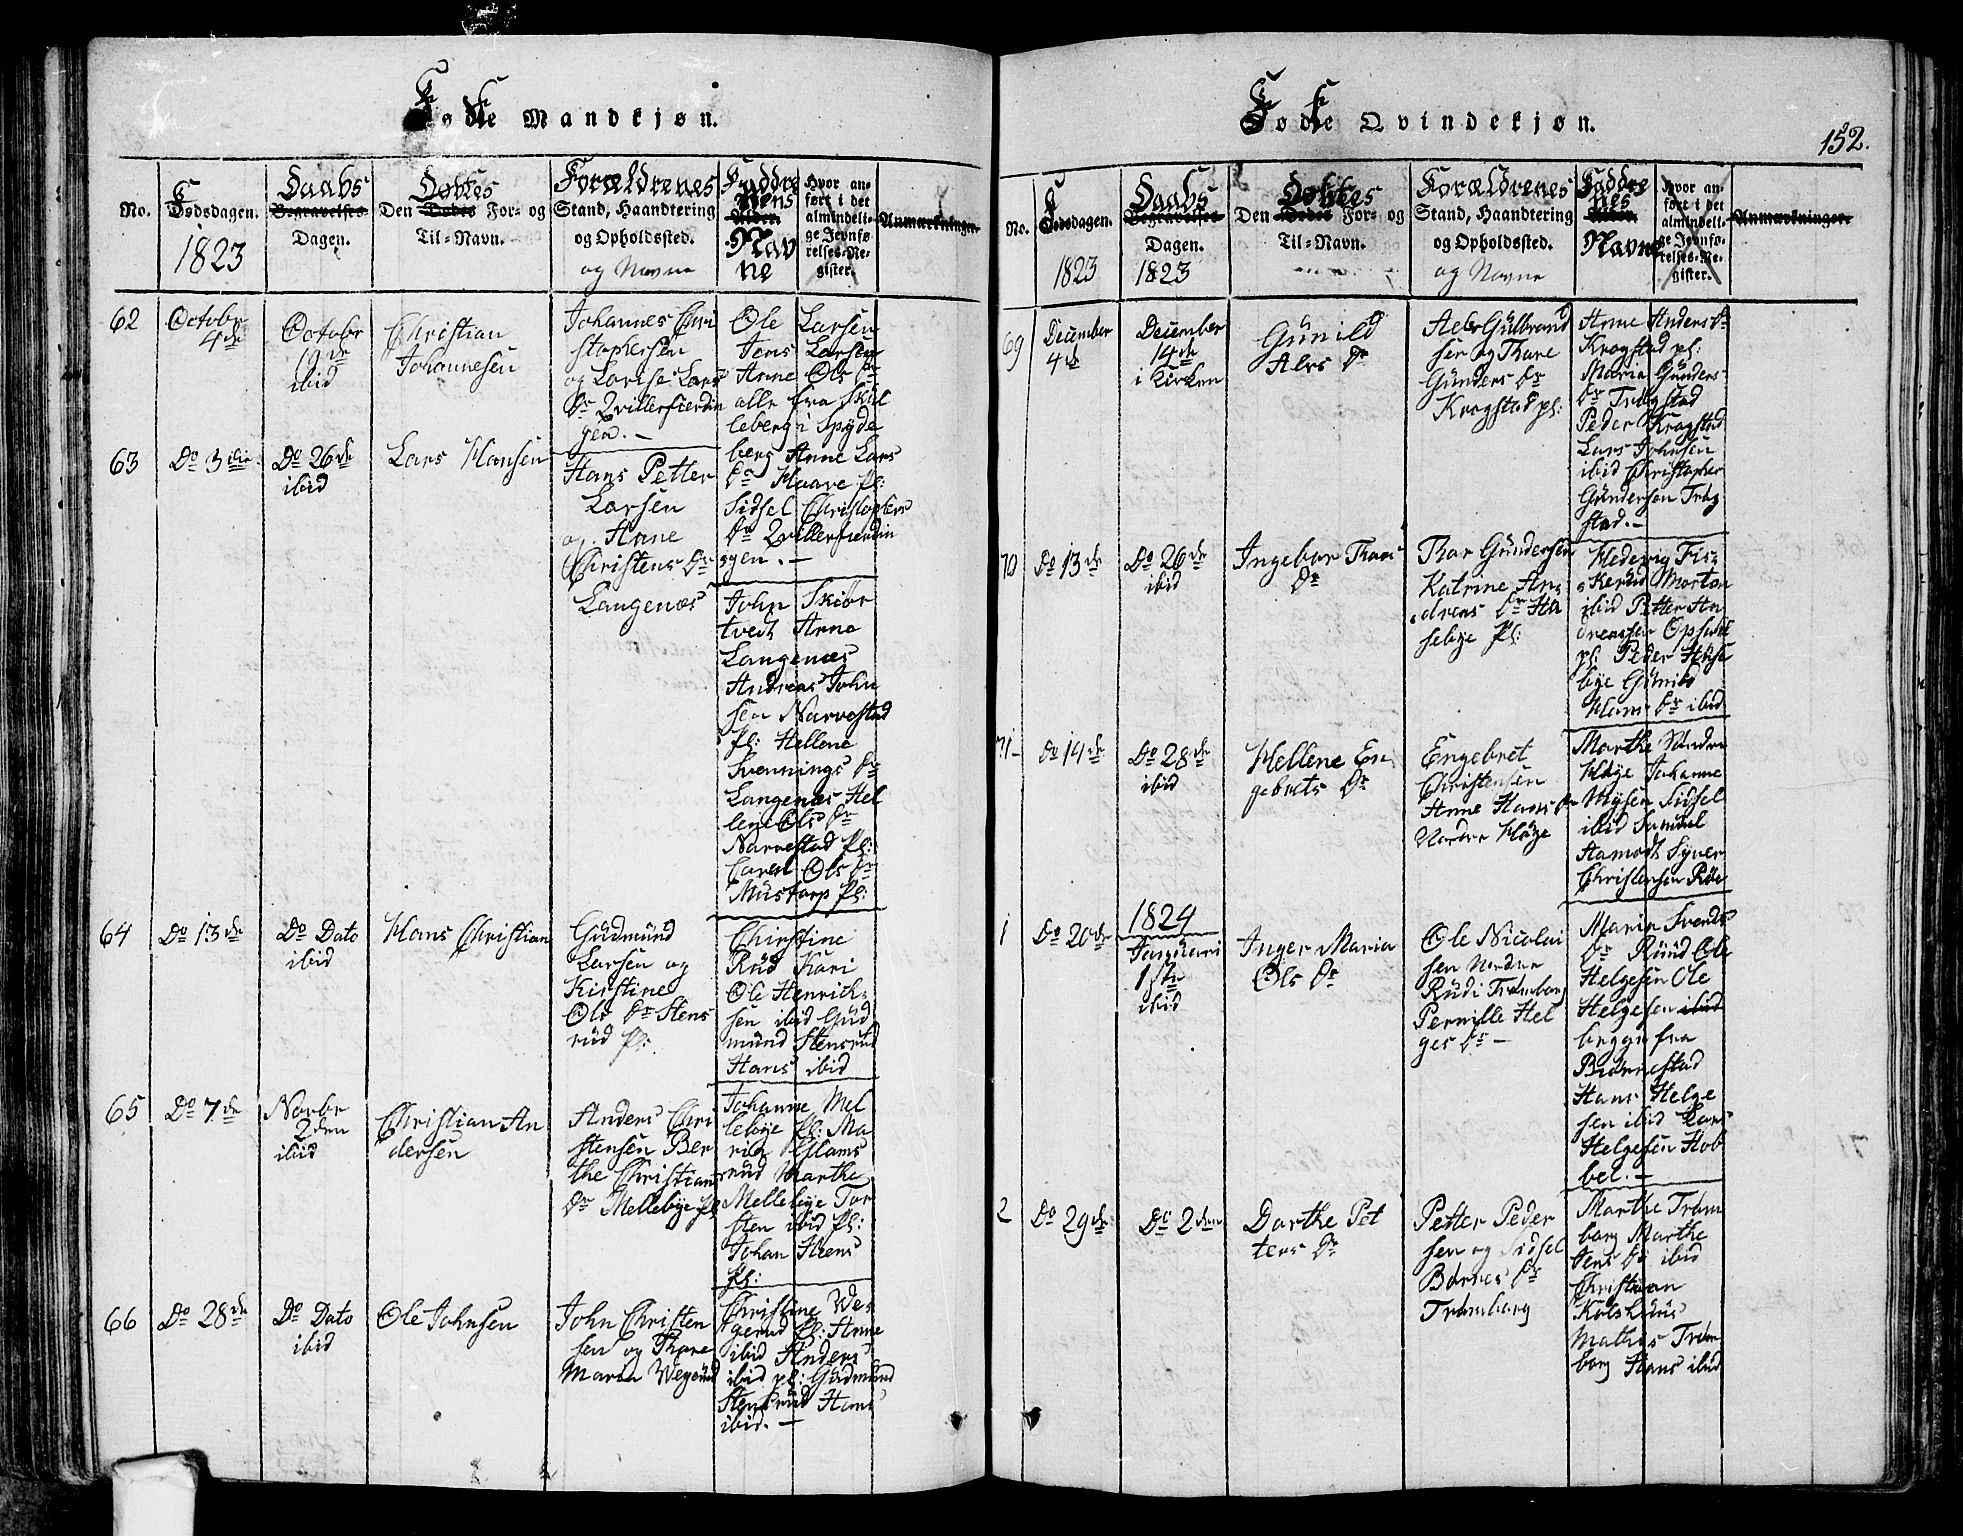 Fødte Mandkjøn.
No.
Fødsdagen.
1823
Daabs
Begravelses-
Dagen.
Døbtes
Den Dødes For- og
Til-Navn.
Forældrenes
Stand, Haandtering
og Opholdssted.
og Navne
Faddre
nes
Alder.
Navne
Hvor an-
ført i det
almindeli-
ge Jevnfø-
relses-Re-
gister.
Anmærkninger.
62
Octobr
4de
Octobr
19de
ibid
Christian
Johannesen
Johannes Chri
stophersen
og Lovise Lars
Dr Qvillerfierdin
gen. -
Ole Larsen
Jens Larsen
Anne Ols Dr
alle fra Skul
leberg i Spyde
berg Anne Lars
Dr Haare pl:
Sidsel Christophers
Dr Qvillerfierdin
gen. -
63
Do 3die
Do 26de
ibid
Lars Hansen
Hans Petter
Larsen
og Anne
Christens Dr
Langenæs
John Skiør
tvedt Anne
Langenæs
Andreas John
sen Narvestad
pl: Hellene
Svennings Dr
Langenæs Hel
lene Ols Dr
Narvestad pl:
Caren Ols Dr
Mustorp pl:
64
Do 13de
Do Dato
ibid
Hans Christian
Gudmund
Larsen og
Kirstine
Ols Dr Stens
rud pl:
Christine
Rud Kari
Ole Henrick
sen ibid Gud
mund Stensrud
Hans ibid
65
Do 7de
Novbr
2den
ibid
Christian An
dersen
Anders Chri
stensen Ber
the Christians
Dr Mellebye pl
Johanne Mel
lebye pl: Ma
ria Glams
rud Marthe
Mellebye Tor
sten ibid pl:
Johan Steens
pl:
66
Do 28de
Do Dato
ibid
Ole Johnsen
John Christen
sen og Thare
Maria Wegerud
Christine We
gerud pl: Anne
ibid Anders
ibid pl: Gudmund
Stensrud Hans
ibid. -
Fødte Qvindekjøn.
152.
No.
Fødsdagen.
1823
Daabs
Begravelses-
Dagen.
1823
Døbtes
Den Dødes For- og
Til-Navn.
Forældrenes
Stand, Haandtering
og Opholdssted.
og Navne
Faddre
nes
Alder.
Navne
Hvor an-
ført i det
almindeli-
ge Jevnfø-
relses-Re-
gister.
Anmærkninger.
69
December
4de
December
14de
i Kirken
Gunild
Alers Dr
Gulbrand
sen og Thare
Gunders Dr
Krogstad pl:
Anne Anders Dr
Krogstad pl:
Maria Gunders
Dr Trøgstad
Peder Krogstad
Lars Johnsen
ibid Christopher
Gundersen Trøg
stad. -
70
Do 13de
Do 26de
ibid
Ingebor Thors
Dr
Thor Gundersen
Katrine An
drens Dr Ha
sebye pl:
Hedevig Fis
kerud Morten
ibid Petter An
dreassen Opsahl
pl: Peder Hase
bye Gunild
Hans Dr ibid
71
Do 14de
Do 28de
ibid
Hellene En
gebrets Dr
Engebret
Christensen
Anne Hans Dr
Nordre Høye
Marthe Søndre
Høye Johanne
Mysen Sidsel
ibid Samuel
Aamodt Syver
Christensen Røe
1
Do 20de
1824
Januari
1ste
ibid
Inger Maria
Ols Dr
Ole Nicolai
sen Nordre
Rud i Trømborg
Pernille Hel
ges Dr -
Maria Svends
Dr Ruud Ole
Helgesen Ole
Helgesen ibid
begge fra
Biørnestad
Hans Helge
sen ibid Lars
Helgesen Hob
bel. -
2
Do 29de
Do 2den
Dorthe Pet
ters Dr
Petter Peder
sen og Sidsel
Børres Dr
Trømborg
Marthe Trøm
borg Marthe
Jens Dr ibid
Christian
Kolshuus
Mathis Trøm
borg Hans ibid